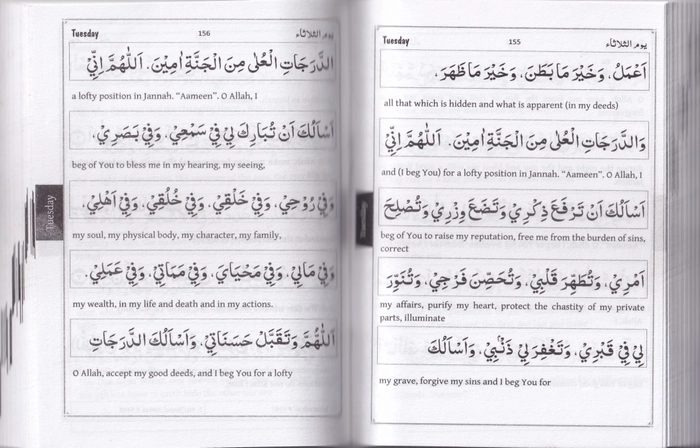 Tuesday 155 يوم الثلاثاء
اَعْمَلُ، وَخَيْرَ مَا بَطَنَ، وَخَيْرَ مَا ظَهَرَ،
all that which is hidden and what is apparent (in my deeds)
وَالدَّرَجَاتِ الْعُلٰى مِنَ الْجَنَّةِ اٰمِيْنَ. اَللّٰهُمَّ اِنِّيْ
and (I beg You) for a lofty position in Jannah. “Aameen”. O Allah, I
اَسْاَلُكَ اَنْ تَرْفَعَ ذِكْرِيْ وَتَضَعَ وِزْرِيْ وَتُصْلِحَ
beg of You to raise my reputation, free me from the burden of sins,
correct
اَمْرِيْ، وَتُطَهِّرَ قَلْبِيْ، وَتُحَصِّنَ فَرْجِيْ، وَتُنَوِّرَ
my affairs, purify my heart, protect the chastity of my private
parts, illuminate
لِيْ فِيْ قَبْرِيْ، وَتَغْفِرَ لِيْ ذَنْبِيْ، وَاَسْاَلُكَ
my grave, forgive my sins and I beg You for
Tuesday 156 يوم الثلاثاء
الدَّرَجَاتِ الْعُلٰى مِنَ الْجَنَّةِ اٰمِيْنَ. اَللّٰهُمَّ اِنِّيْ
a lofty position in Jannah. “Aameen”. O Allah, I
اَسْاَلُكَ اَنْ تُبَارِكَ لِيْ فِيْ سَمْعِيْ، وَفِيْ بَصَرِيْ،
beg of You to bless me in my hearing, my seeing,
وَفِيْ رُوْحِيْ، وَفِيْ خَلْقِيْ، وَفِيْ خُلُقِيْ، وَفِيْ اَهْلِيْ،
my soul, my physical body, my character, my family,
وَفِيْ مَالِيْ، وَفِيْ مَحْيَايَ، وَفِيْ مَمَاتِيْ، وَفِيْ عَمَلِيْ.
my wealth, in my life and death and in my actions.
اَللّٰهُمَّ وَتَقَبَّلْ حَسَنَاتِيْ، وَاَسْاَلُكَ الدَّرَجَاتِ
O Allah, accept my good deeds, and I beg You for a lofty
Tuesday